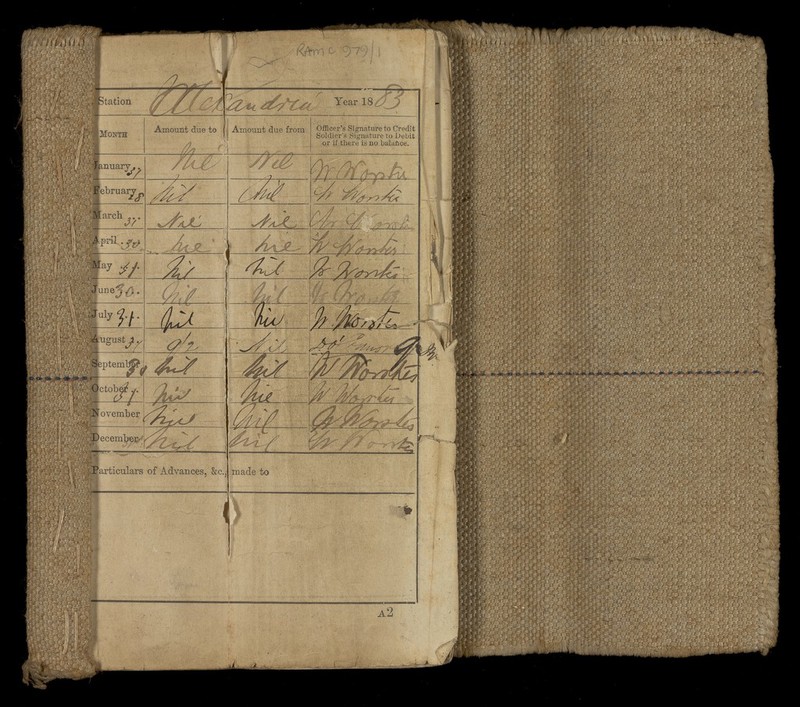 RAMC 979/1
Station Alexandria Year 1883
Month Amount due to Amount due from Officer's Signature to Credit
Soldier's Signature to Debit
or if there is no balance.
January 31 Nil Nil W Worster
February 28 Nil Nil W Worster
March 31 Nil Nil W Worster
April 30 Nil Nil W Worster
May 31 Nil Nil W Worster
June 30 Nil Nil W Worster
July 31 Nil Nil W Worster
August 31 Nil
September 30 Nil Nil W Worster
October 31 Nil Nil W Worster
November Nil Nil W Worster
December Nil Nil W Worster
Particulars of Advances, &c., made to
A2